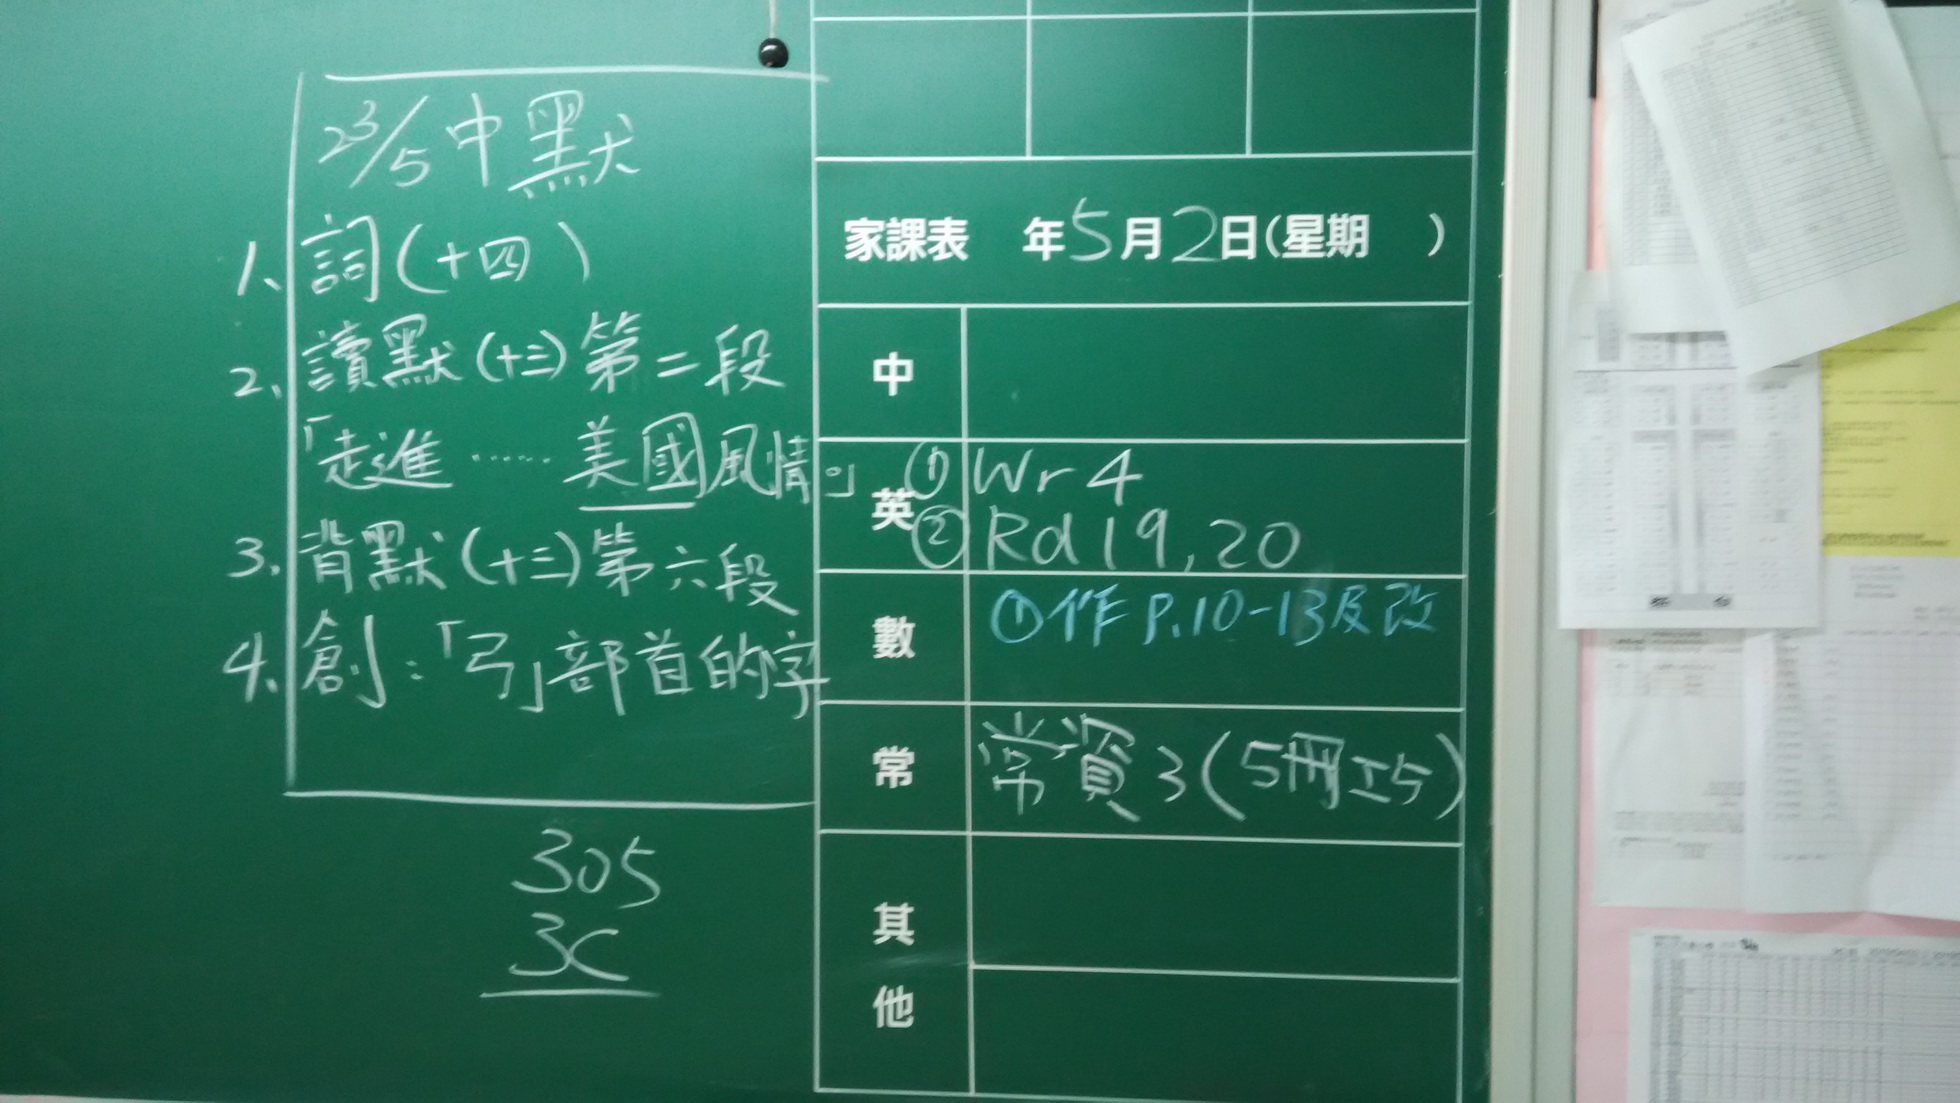 23/5 中默
1、詞(十四)
2、讀默(十三)第二段
「走進……美國風情。」
3、背默(十三)第六段
4、創：「弓」部首的字
305
3C
家課表 年5月2日(星期 )
中
英 ① Wr 4
② Rd 19, 20
數 ①作 P.10-13及改
常 常資3(5冊工5)
其他